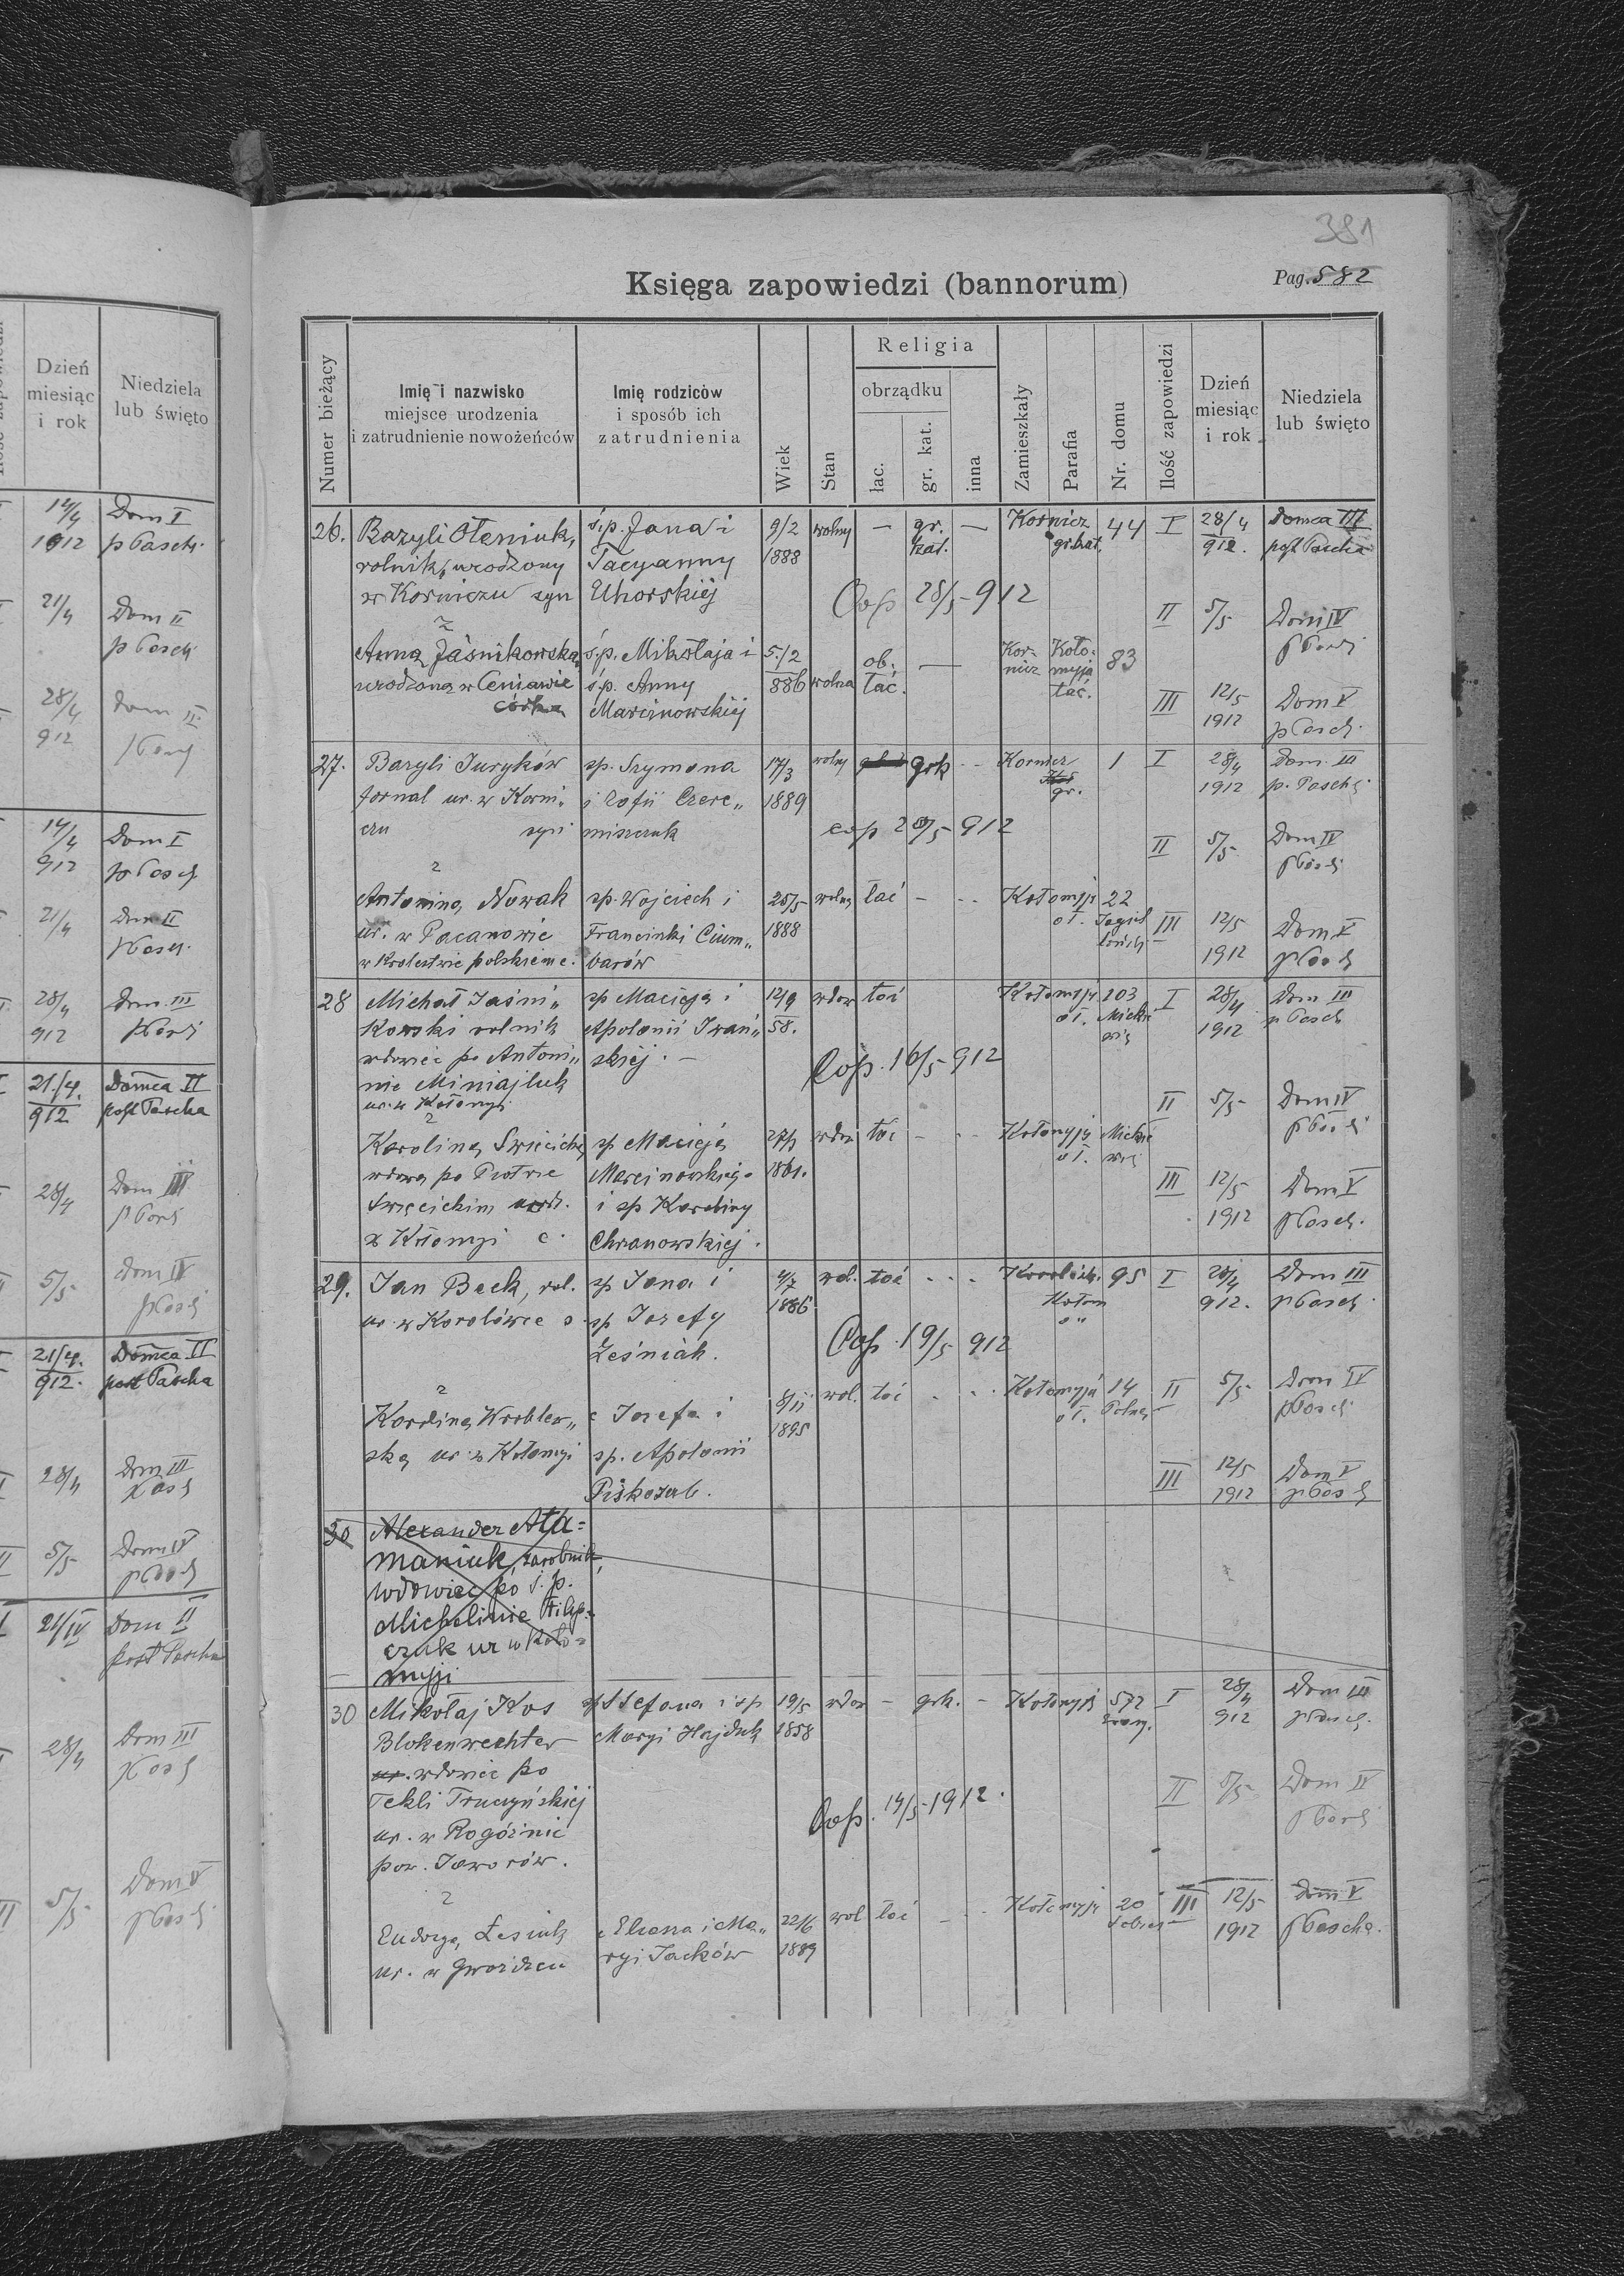 381
Księga zapowiedzi (bannorum)
Pag. 582
Numer bieżący
Imię i nazwisko
miejsce urodzenia
i zatrudnienie nowożeńców
Imię rodziców
i sposób ich
zatrudnienia
Wiek
Stan
Religia
obrządku
łac.
gr. kat.
inna
Zamieszkały
Parafia
Nr. domu
Ilość zapowiedzi
Dzień
miesiąc
i rok
Niedziela
lub święto
26. Bazyli Oleniuk, ś.p. Jana i 9/2 wolny — gr. — Kornicz 44 I 28/4 Domca III
rolnik, urodzony Tacyanny 1888 kat. gr.kat. 912. post Pascha
w Korniczu syn Uhorskiej
Cop 28/5-912
II 5/5 Dom IV
z
Anna Jaśnikowska, ś.p. Mikołaja i 5./2 wolna ob. — Kor- Koło- 83
urodzona w Ceniawie ś.p. Anny 886 łać. nicz myja
córka Marcinowskiej łać.
III 12/5 Dom V
1912 p Pasch.
27. Bazyli Juryków sp. Szymona 17/3 wolny grk -- Kornicz 1 I 28/4 Dom. III
fornal ur. w Korni„ i Zofii Czere„ 1889 gr. 1912 p. Pasch
czu syn miszczuk
cop 28/5-912
II 5/5 Dom IV
z
Antonina Nowak sp. Wojciech i 25/5 wolna łać - -- Kołomyja 22
ur. w Pacanowie Francinki Cium„ 1888 o ł. Jagiel III 12/5 Dom V
w Krolestwie polskiem c. barów 1912 p Pasch
28 Michał Jaśni„ sp Macieja i 12/9 wdow łać Kołomyja 103 I 28/4 Dom III
kowski rolnik Apolonii Iwań„ 58. o ł. Mickie 1912 p Pasch
wdowiec po Antoni„ skiej. —
nie Miniajluk
ur. w Kołomyi
Cop. 16/5-912
II 5/5 Dom IV
z
Karolina Swiecicka sp Macieja 27/1 wdow łac - -- Kołomyja Mickie
wdowa po Piotrze Marcinowskiego 1861. o ł.
Swiecickim urodz. i sp Karoliny III 12/5 Dom V
z Kołomyi c. Chranowskiej. 1912 p Pasch.
29. Jan Beck, rol. sp Jana i 4/7 wol. łać - - - 95 I 28/4 Dom III
ur. w Korolówce s. sp Jozefy 1886 Kołom 912. p Pasch
Leśniak.
Cop. 19/5 912
z
Karolina Wroblew„ c Jozefa i 8/11 wol. łać - - - Kołomyja 14 II 5/5 Dom IV
ska ur. w Kołomyi sp. Apolonii 1895 o ł. Polna p Pasch
Piskozub.
III 12/5 Dom V
1912 p Pasch
30 Alexander Ata=
maniuk, zarobnik,
wdowiec po ś.p.
Michelinie Filip=
czuk ur w Koło=
myji
30 Mikołaj Kos sp Stefana i sp 19/5 wdow - grk. - Kołomyja 572 I 28/4 Dom III
Blokenwechter Maryi Hajduk 1858 912 p Pasch.
ur. wdowiec po
Tekli Truczyńskiej
ur. w Rogóźnie
pow. Jaworów.
Cop. 14/5-1912.
II 5/5- Dom IV
z
Eudozya Łesiuk c Eliasza i Ma„ 22/6 wol łać - -- Kołomyja 20 III 12/5 Dom V
ur. w Gwoźdzcu ryi Jacków 1889 1912 p Pascha.
Dzień
miesiąc
i rok
Niedziela
lub święto
14/4 Dom I
1912 p Pasch.
21/4 Dom II
p Pasch
28/4 Dom II
912
14/4 Dom I
912 p Pasch
21/4 Dom II
p Pasch
28/4 Dom III
912
21./4. Domca II
912 post Pascha
28/4 Dom III
5/5 Dom IV
p Pasch
21/4. Domca II
912. post Pascha
28/4 Dom III
5/5 Dom IV
p Pasch
21/IV Dom II
post Pascha
28/4 Dom III
5/5 Dom V
p Pasch